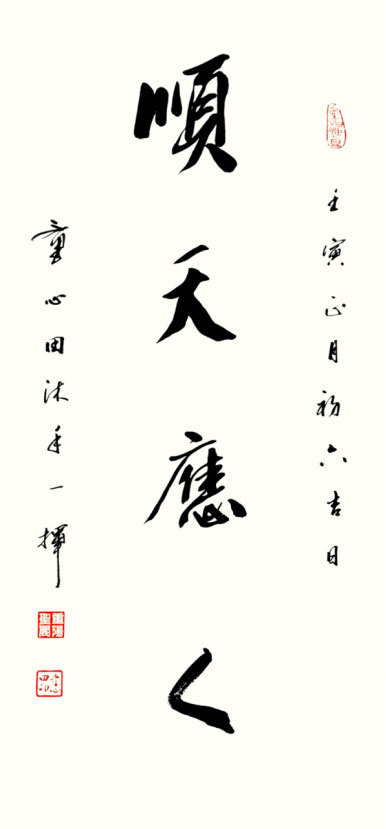 壬寅正月初六吉日
順天應人
童心田沐手一揮